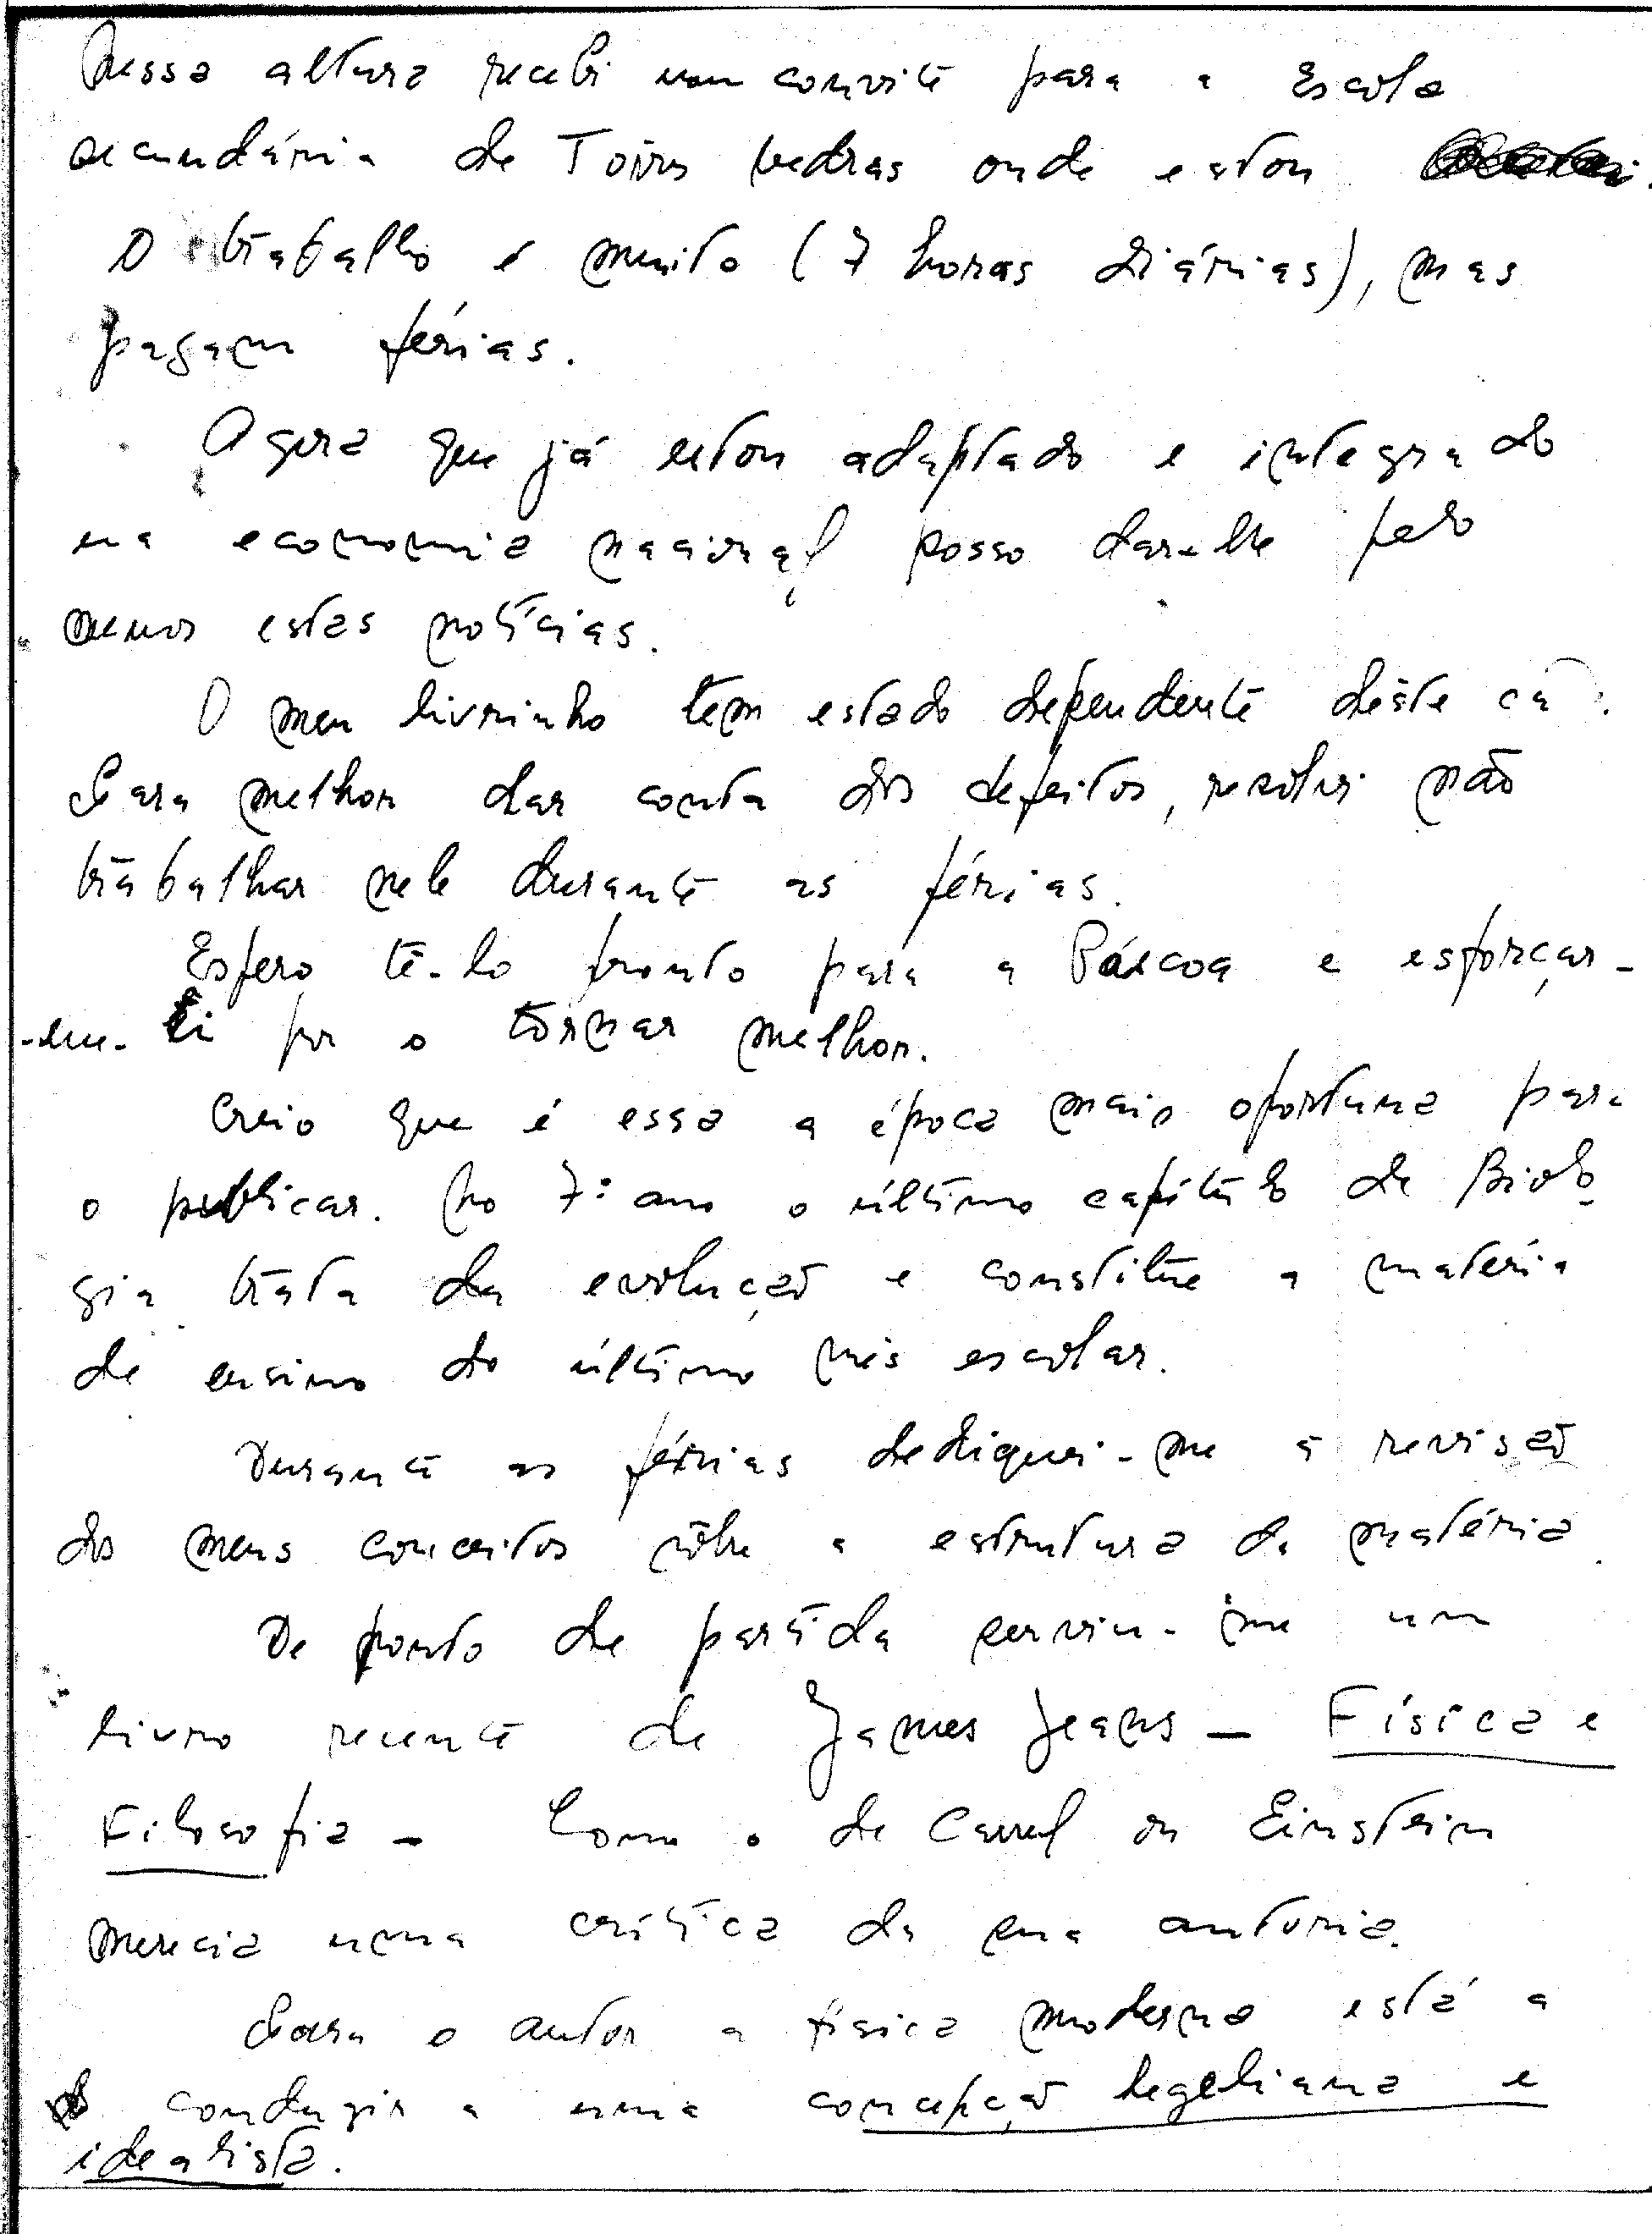 Nessa altura recebi um convite para a Escola
secundária de Tôrres Vedras onde estou
O trabalho é muito (7 horas diárias), mas
pagam férias.
Agora que já estou adaptado e integrado
na economia nacional posso dar-lhe pelo
menos estas notícias.
O meu livrinho tem estado dependente dêste
Para melhor dar conta dos defeitos, resolvi não
trabalhar nele durante as férias.
Espero tê-lo pronto para a Páscoa e esforçar-
-me-ei por o tornar melhor.
Creio que é essa a época mais oportuna para
o publicar. No 7º ano o último capítulo de Biolo
gia trata da evolução e constitue a matéria
de ensino do último mês escolar.
Durante as férias dediquei-me à revisão
dos meus conceitos sôbre a estrutura da matéria.
De ponto de partida serviu-me um
livro recente de James Jeans — Física e
Filosofia - Como o de Carrel ou Einstein
merecia uma crítica da sua autoria.
Para o autor a física moderna está a
conduzir a uma concepção hegeliana e
idealista.